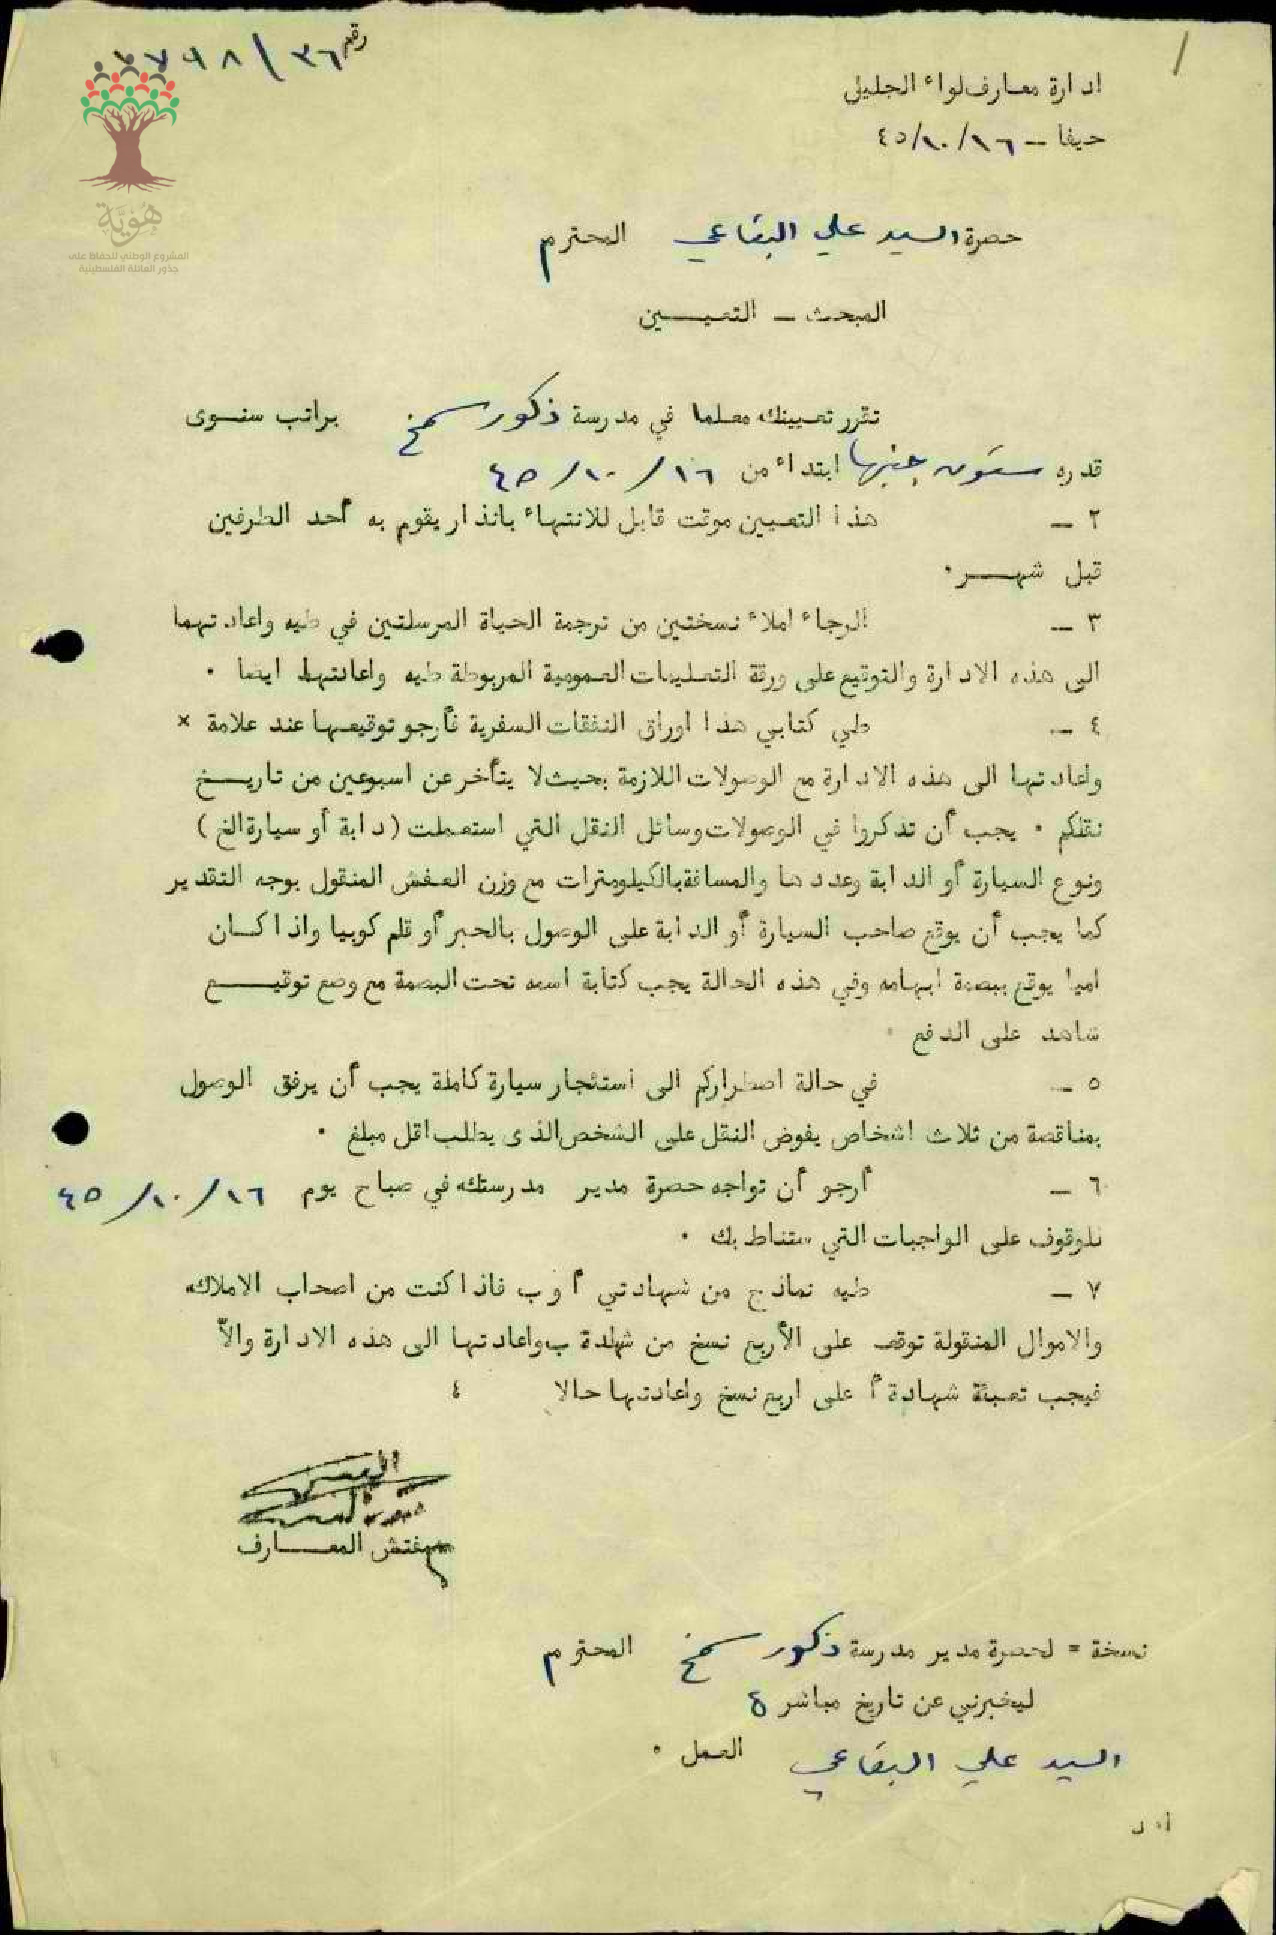 رقم ٣٦/٧٧٩٨
ادارة معارف لواء الجليل
حيفا – ٤٥/١٠/١٦
هُويَّة
المشروع الوطني للحفاظ على
جذور العائلة الفلسطينية
حضرة السيد علي البقاعي المحترم
المبحث – التعيـــين
تقرر تعيينك معلما في مدرسة ذكور سمخ براتب سنوى
قدره ستون جنيها ابتداء من ٤٥/١٠/١٦
٢ – هذا التعيين موقت قابل للانتهاء بانذار يقوم به أحد الطرفين
قبل شهـــر ٠
٣ – الرجاء املاء نسختين من ترجمة الحياة المرسلتين في طيه واعادتهما
الى هذه الادارة والتوقيع على ورقة التعليمات العمومية المربوطة طيه واعادتها ايضا ٠
٤ – طي كتابي هذا اوراق النفقات السفرية فأرجو توقيعها عند علامة ×
واعادتها الى هذه الادارة مع الوصولات اللازمة بحيث لا يتأخر عن اسبوعين من تاريـــخ
نقلكم ٠ يجب أن تذكروا في الوصولات وسائل النقل التي استعملت (دابة أو سيارة الخ )
ونوع السيارة أو الدابة وعددها والمسافة بالكيلومترات مع وزن العفش المنقول بوجه التقدير
كما يجب أن يوقع صاحب السيارة أو الدابة على الوصول بالحبر أو قلم كوبيا واذا كـــان
اميا يوقع ببصمة ابهامه وفي هذه الحالة يجب كتابة اسمه تحت البصمة مع وضع توقيـــع
شاهد على الدفع ٠
٥ – في حالة اضطراركم الى استئجار سيارة كاملة يجب أن يرفق الوصول
بمناقصة من ثلاث اشخاص يفوض النقل على الشخص الذى يطلب اقل مبلغ ٠
٦ – أرجو أن تواجه حضرة مدير مدرستك في صباح يوم ٤٥/١٠/١٦
للوقوف على الواجبات التي ستناط بك ٠
٧ – طيه نماذج من شهادتي أ و ب فاذا كنت من اصحاب الاملاك
والاموال المنقولة توقع على الأربع نسخ من شهادة ب واعادتها الى هذه الادارة والاّ
فيجب تعبئة شهادة أ على اربع نسخ واعادتها حالا ٤
مفتش المعـــارف
نسخة = لحضرة مدير مدرسة ذكور سمخ المحترم
ليخبرني عن تاريخ مباشرة
السيد علي البقاعي العمل ٠